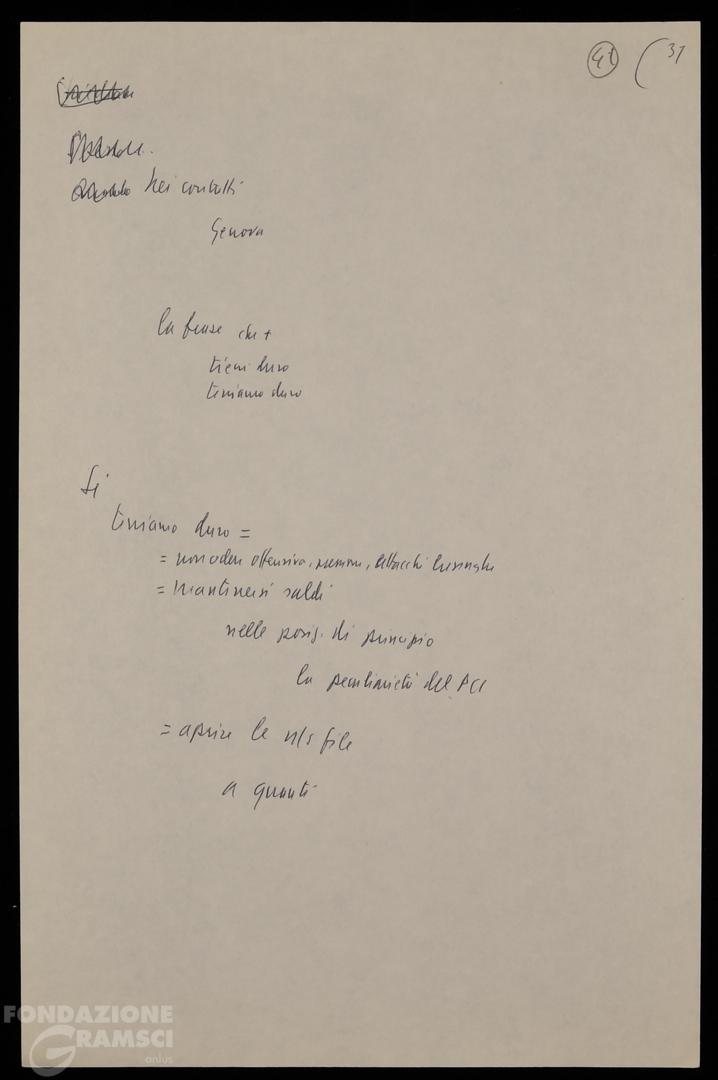 41 (31
Nei contatti
Genova
la frase che +
tieni duro
teniamo duro
Sì
teniamo duro =
= non cedere offensiva, pressioni, attacchi lusinghe
= mantenersi saldi
nelle posiz. di principio
la peculiarietà del PCI
= aprire le n/s file
a quanti
FONDAZIONE
GRAMSCI
onlus